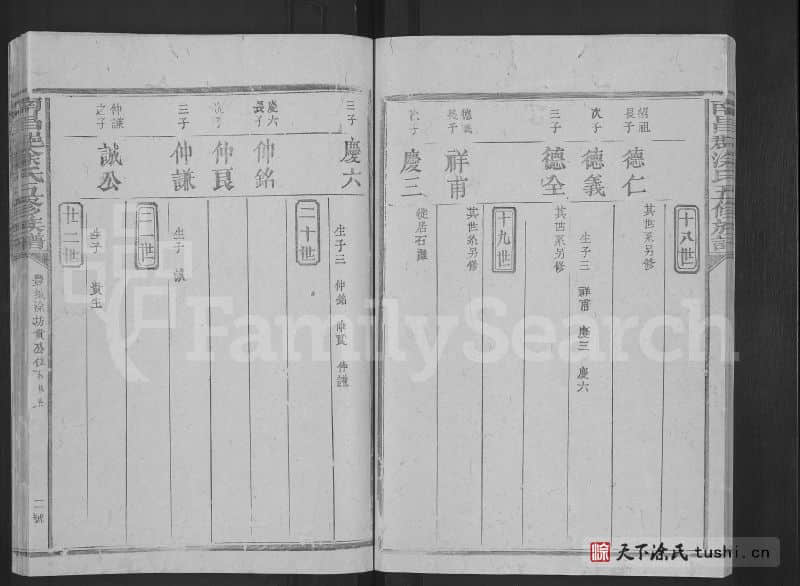 十八世
紹祖
長子
德仁
其世系另修
次子
德義
生子三 祥甫 慶三 慶六
三子
德全
其世系另修
十九世
德義
長子
祥甫
其世系另修
次子
慶三
徙居石灘
三子
慶六
生子三 仲銘 仲良 仲謙
二十世
慶六
長子
仲銘
次子
仲良
三子
仲謙
生子 誠
二一世
仲謙
之子
誠公
生子 貴生
廿二世
二號
FamilySearch
天下涂氏 tushi.cn